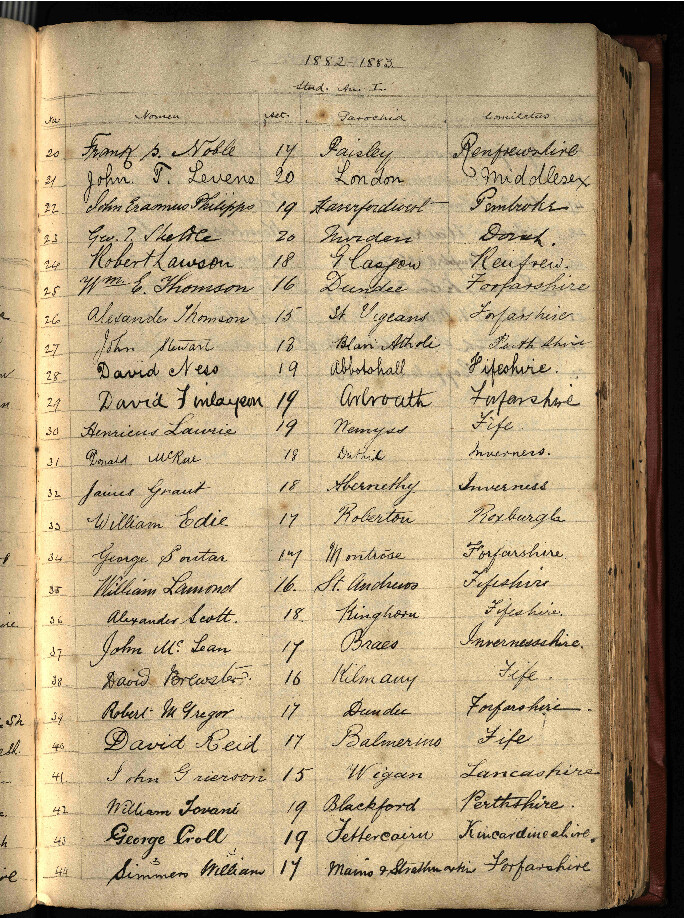 1882-1883
Stud. An. I.
No. Nomen Aet. Parochia Comitatus
20 Frank S. Noble 17 Paisley Renfrewshire
21 John T. Levens 20 London Middlesex
22 John Erasmus Philipps 19 Haverfordwest Pembroke
23 Geo. 20 Dorset.
24 Robert Lawson 18 Glasgow Renfrew.
25 Wm. E. Thomson 16 Dundee Forfarshire
26 Alexander Thomson 15 St Vigeans Forfarshire
27 John Stewart 13 Blair Atholl Perthshire
28 David Ness 19 Abbotshall Fifeshire.
29 David Finlayson 19 Arbroath Forfarshire
30 Henricus Lawrie 19 Wemyss Fife
31 Donald McRae 18 Duthil Inverness.
32 James Grant 18 Abernethy Inverness
33 William Edie 17 Roberton Roxburgh
34 George Soutar 17 Montrose Forfarshire
35 William Lamond 16. St. Andrews Fifeshire
36 Alexander Scott. 18 Kinghorn Fifeshire.
37 John McLean 17 Braes Invernessshire.
38 David Brewster 16 Kilmany Fife.
39 Robert McGregor 17 Dundee Forfarshire.
40 David Reid 17 Balmerino Fife
41 John Grierson 15 Wigan Lancashire
42 William 19 Blackford Perthshire.
43 George Croll 19 Fettercairn Kincardineshire.
44 Simmers William 17 Mains & Strathmartin Forfarshire